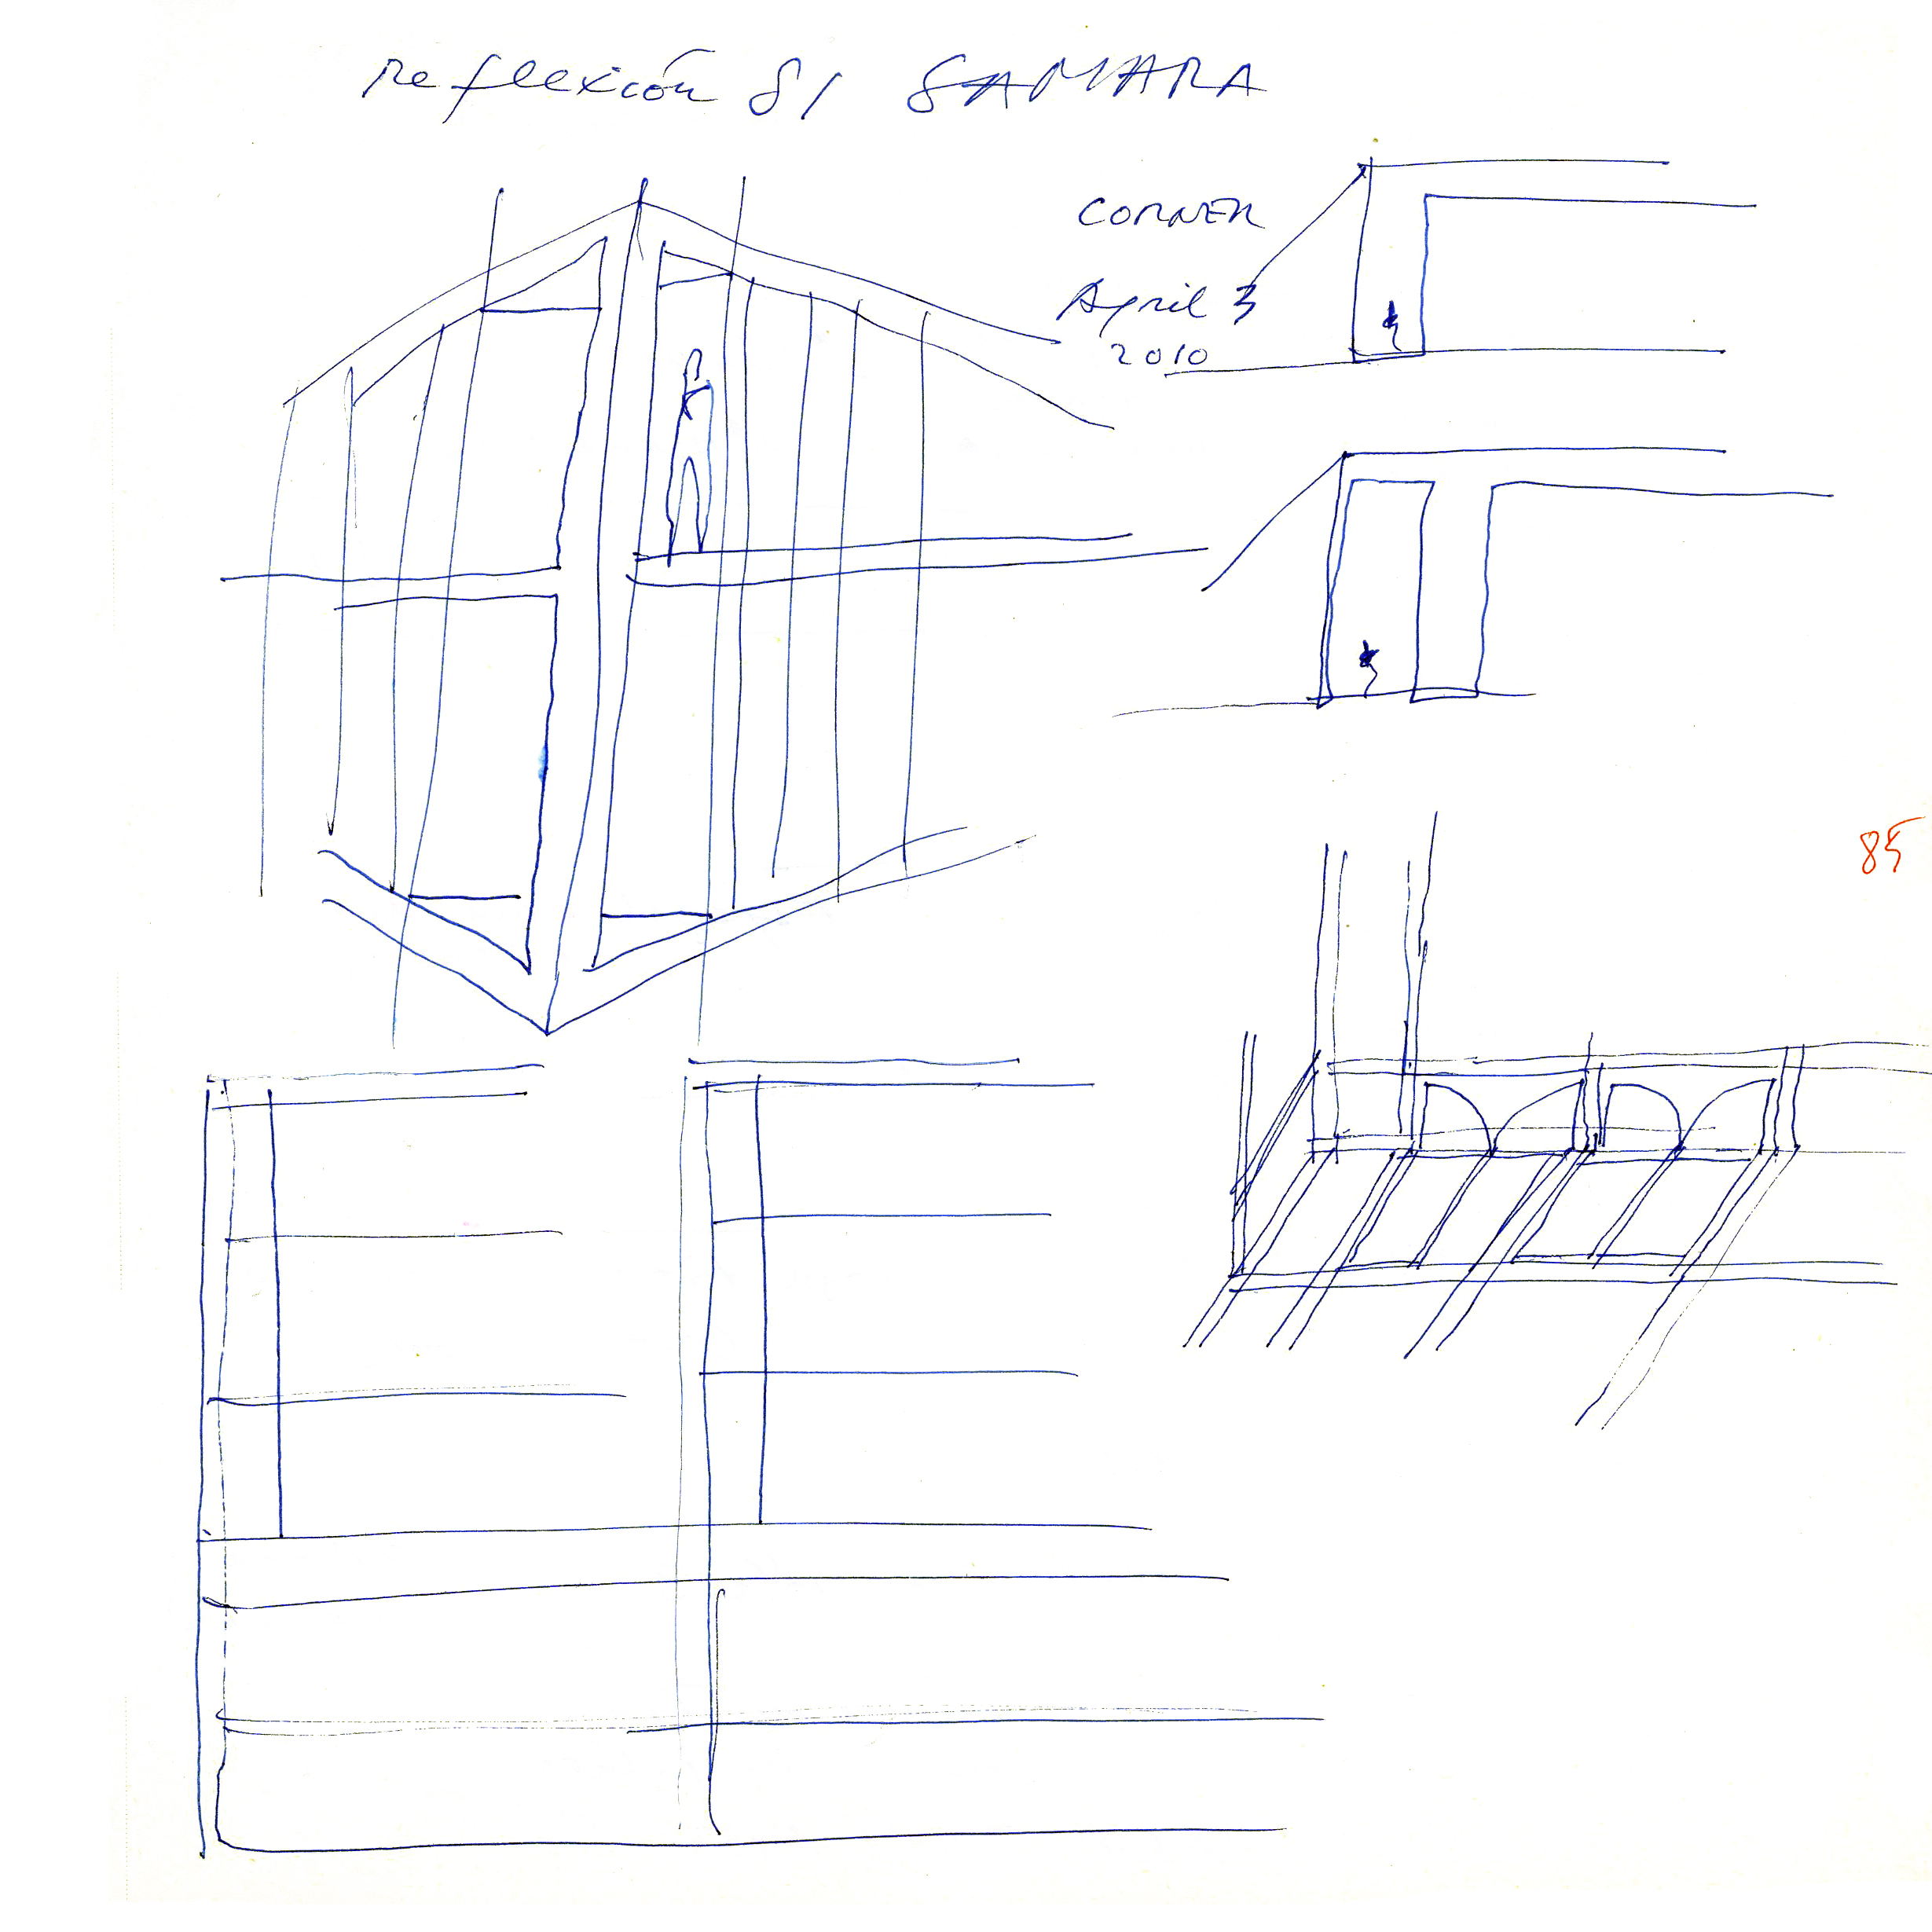 Reflexión 81 SAMARA
CORNER
April 3
2010
85